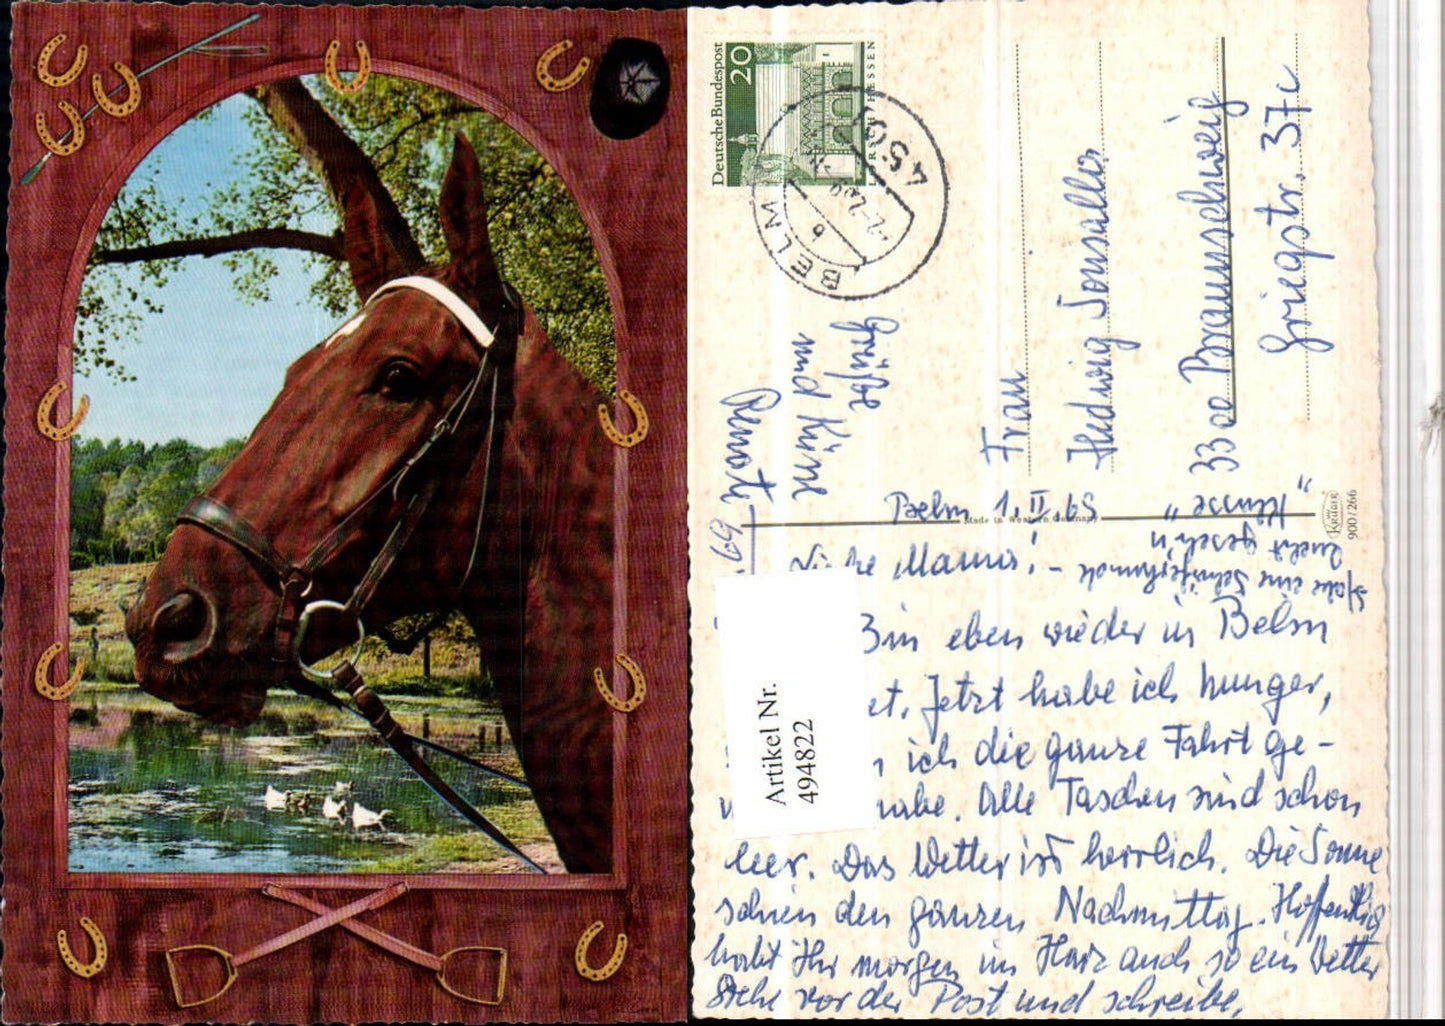 Deutsche Bundespost
20
LORSCH HESSEN
4501
BELM
b
Frau
Hedwig
33oo Braunschweig
Griegstr. 37c
Grüße
und Küsse
Renate
Made in Western Germany
Krüger
900/266
Belm 1.II.69
Liebe Mama! –
Habe eine
"Künste"
Bin eben wieder in Belm
et. Jetzt habe ich Hunger,
ich die ganze Fahrt ge-
habe. Alle Taschen sind schon
leer. Das Wetter ist herrlich. Die Sonne
schien den ganzen Nachmittag. Hoffentlich
habt Ihr morgen im Harz auch so ein Wetter
Stehe vor der Post und schreibe.
Artikel Nr.
494822